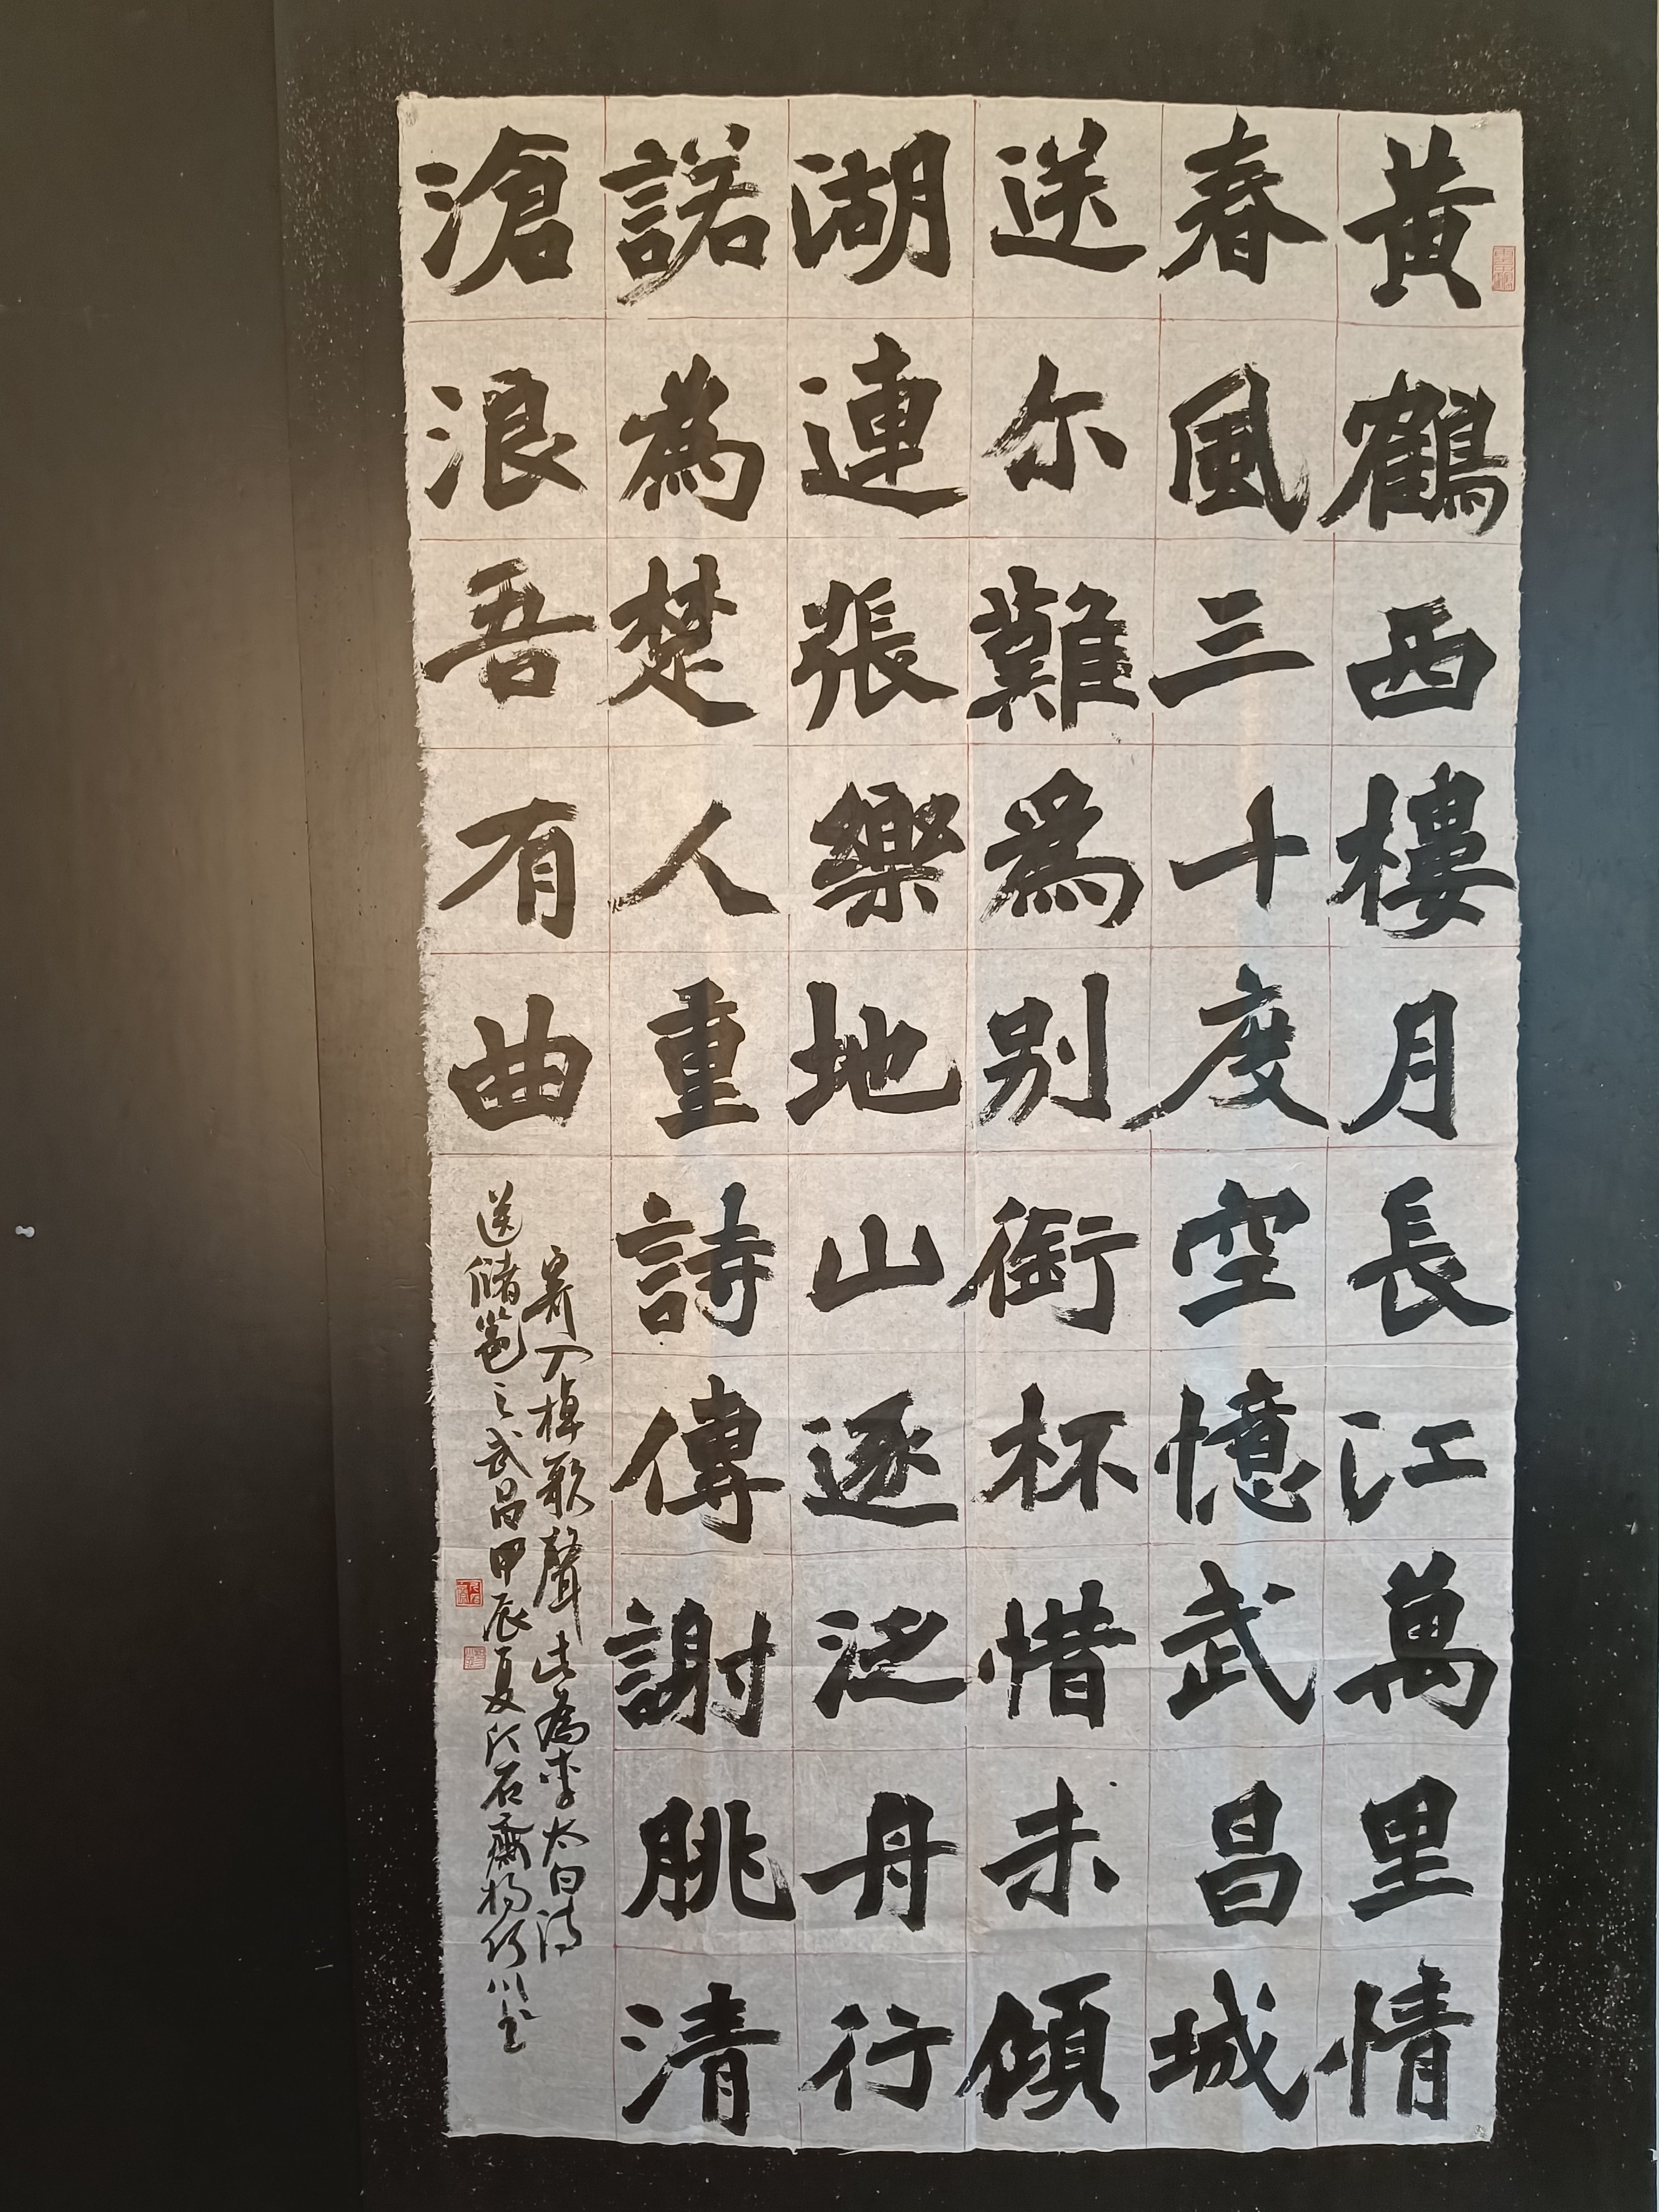 黃鶴西樓月長江萬里情
春風三十度空憶武昌城
送尔難爲别銜杯惜未傾
湖連張樂地山逐泛舟行
諾為楚人重詩傳謝朓清
滄浪吾有曲
寄入棹歌聲此為李太白詩
送儲邕之武昌甲辰夏石齋楊川書